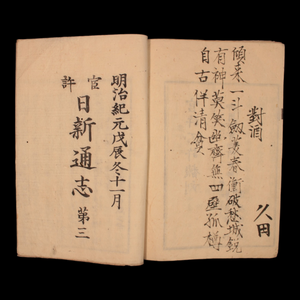 對酒
傾来一斗劔菱春衝破愁城鋭
有神莫笑幽齋四壁孤樽
自古伴清貧
久田
明治紀元戊辰冬十一月
官許
日新通志 第三